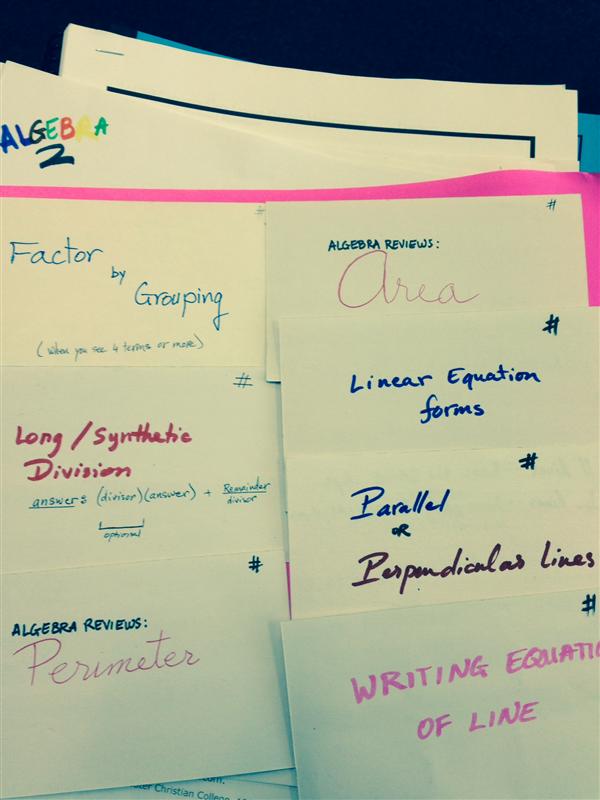 ALGEBRA
2
#
Factor
by
Grouping
(when you see 4 terms or more)
#
Long / Synthetic
Division
answers (divisor)(answer) + Remainder
divisor
optional
#
ALGEBRA REVIEWS:
Perimeter
#
ALGEBRA REVIEWS:
Area
#
Linear Equation
forms
#
Parallel
OR
Perpendicular Lines
#
WRITING EQUATIO
OF LINE
ter Christian College